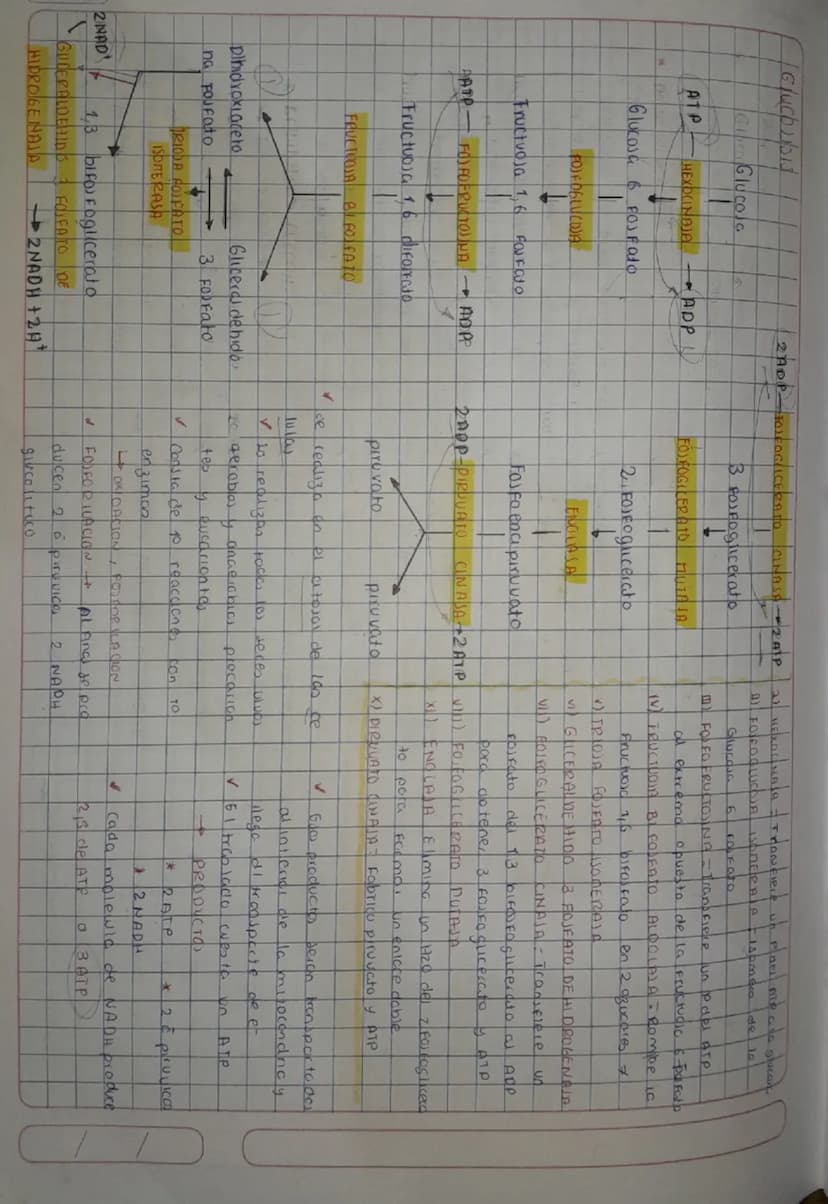 Glucolisis
Glucosa
ATP — HEXOCINASA → ADP
Glucosa 6 fosfato
FOSFOGLUCOSA
Fructuosa 1,6 fosfato
ATP — FOSFOFRUCTOSINA → ADP
Fructuosa 1,6 difosfato
FRUCTUOSA BIFOSFATO
Dihidroxiaceto Gliceraldehido
na fosfato 3 fosfato
TRIOSA FOSFATO
ISOMERASA
2NAD+
1,3 bifosfoglicerato
GLICERALDEHIDO 3 FOSFATO DE
HIDROGENASA → 2NADH + 2A+
2ADP — FOSFOGLICERATO CINASA → 2ATP
3 fosfoglicerato
FOSFOGLICERATO MUTASA
2. Fosfoglicerato
ENOLASA
Fosfoenolpiruvato
2ADP — PIRUVATO CINASA → 2ATP
piruvato piruvato
✓ se realiza en el citosol de las ce
lulas
✓ la realizan todos los seres vivos
aerobios y anaerobios procarion
tes y eucariontes
✓ Consta de 10 reacciones con 10
enzimas
→ OXIDACION, FOSFORILACION
✓ FOSFORILACION → Al final se pro
ducen 2 ē piruvica 2 NADH
glucolitico
I) HEXOCINASA = Transfiere un P del ATP a la glucosa
II) FOSFOGLUCOSA ISOMERASA = Isomera de la
Glucosa 6 fosfato
III) FOSFOFRUTOSINA = Transfiere un P del ATP
al extremo opuesto de la fructuosa 6 fosfato
IV) FRUCTUOSA BIFOSFATO ALDOLASA = Rompe la
Fructuosa 1,6 bifosfato en 2 azucares
V) TRIOSA FOSFATO ISOMERASA
VI) GLICERALDEHIDO 3 FOSFATO DE HIDROGENASA
VII) FOSFOGLICERATO CINASA = Transfiere un
fosfato del 1,3 bifosfoglicerato al ADP
para obtener 3 fosfoglicerato y ATP
VIII) FOSFOGLICERATO MUTASA
XI) ENOLASA Elimina un H2O del 2 fosfoglicera
to para formar un enlace doble
X) PIRUVATO CINASA = Fabrica piruvato y ATP
✓ Esos productos seran transportados
al interior de la mitocondria y
llega al transporte de e-
✓ El traslado cuesta un ATP
→ PRODUCTOS
* 2ATP * 2 ē piruvica
* 2NADH
✓ Cada molecula de NADH produce
2,5 de ATP o 3 ATP